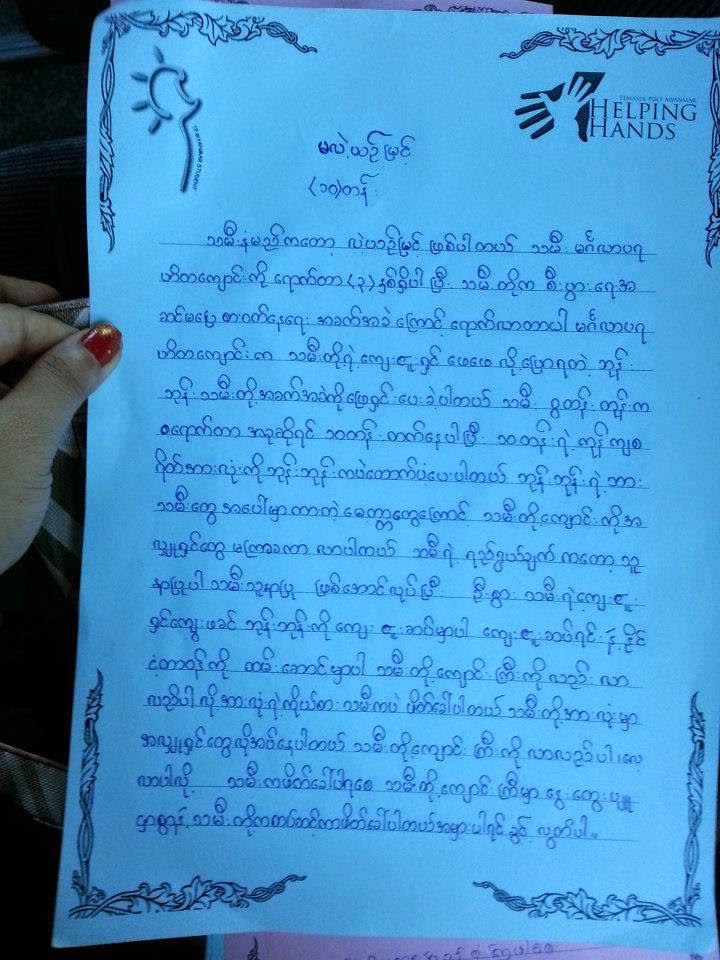 TEMASEK POLY MYANMAR
HELPING
HANDS
TP MYANMAR STUDENT
မလဲ့ယဉ်မြင့်
(၁၀)တန်း
သမီးနံမည်ကတော့ လဲ့ယဉ်မြင့် ဖြစ်ပါတယ် သမီး မင်္ဂလာပရ
ဟိတကျောင်းကို ရောက်တာ (၃)နှစ်ရှိပါပြီ. သမီးတို့က စီးပွားရေးအ
ဆင်မပြေ စားဝတ်နေရေး အခက်အခဲကြောင့် ရောက်လာတာပါ မင်္ဂလာပရ
ဟိတကျောင်းက သမီးတို့ရဲ့ ကျေးဇူးရှင် ဖေဖေ လို့ပြောရတဲ့ ဘုန်း
ဘုန်း သမီးတို့အခက်အခဲကို ဖြေရှင်းပေးခဲ့ပါတယ် သမီး ၇တန်းတုန်းက
စရောက်တာ အခုဆိုရင် ၁၀တန်းတက်နေပါပြီ. ၁၀တန်းရဲ့ ကုန်ကျစ
ရိတ်အားလုံးကို ဘုန်းဘုန်းကပဲထောက်ပံ့ပေးပါတယ် ဘုန်းဘုန်းရဲ့ သား
သမီးတွေ အပေါ်မှာထားတဲ့ မေတ္တာတွေကြောင့် သမီးတို့ကျောင်းကို အ
လှူရှင်တွေ မကြာခဏ လာပါတယ် သမီးရဲ့ ရည်ရွယ်ချက် ကတော့ သူ
နာပြုပါ သမီးသူနာပြု ဖြစ်အောင်လုပ်ပြီး ဦးစွာ သမီးရဲ့ကျေးဇူး
ရှင်ကျွေးဖခင် ဘုန်းဘုန်းကို ကျေးဇူးဆပ်မှာပါ ကျေးဇူးဆပ်ရင်းနဲ့ နိုင်
ငံ့တာဝန်ကို ထမ်းဆောင်မှာပါ သမီးတို့ကျောင်းကြီးကို လည်း လာ
လည်ပါလို့ အားလုံးရဲ့ကိုယ်စား သမီးကပဲ ဖိတ်ခေါ်ပါတယ် သမီးတို့အားလုံးမှာ
အလှူရှင်တွေလိုအပ်နေပါတယ် သမီးတို့ကျောင်းကြီးကို လာလည်ပါ ။လေ့
လာပါလို့ သမီးကဖိတ်ခေါ်ပါရစေ သမီးတို့ကျောင်းကြီးမှာ နွေးထွေးပျူ
ငှာစွာနဲ့ သမီးတို့ကထပ်ဆင့်ကာဖိတ်ခေါ်ပါတယ်အမှားပါရင် ခွင့်လွှတ်ပါ။